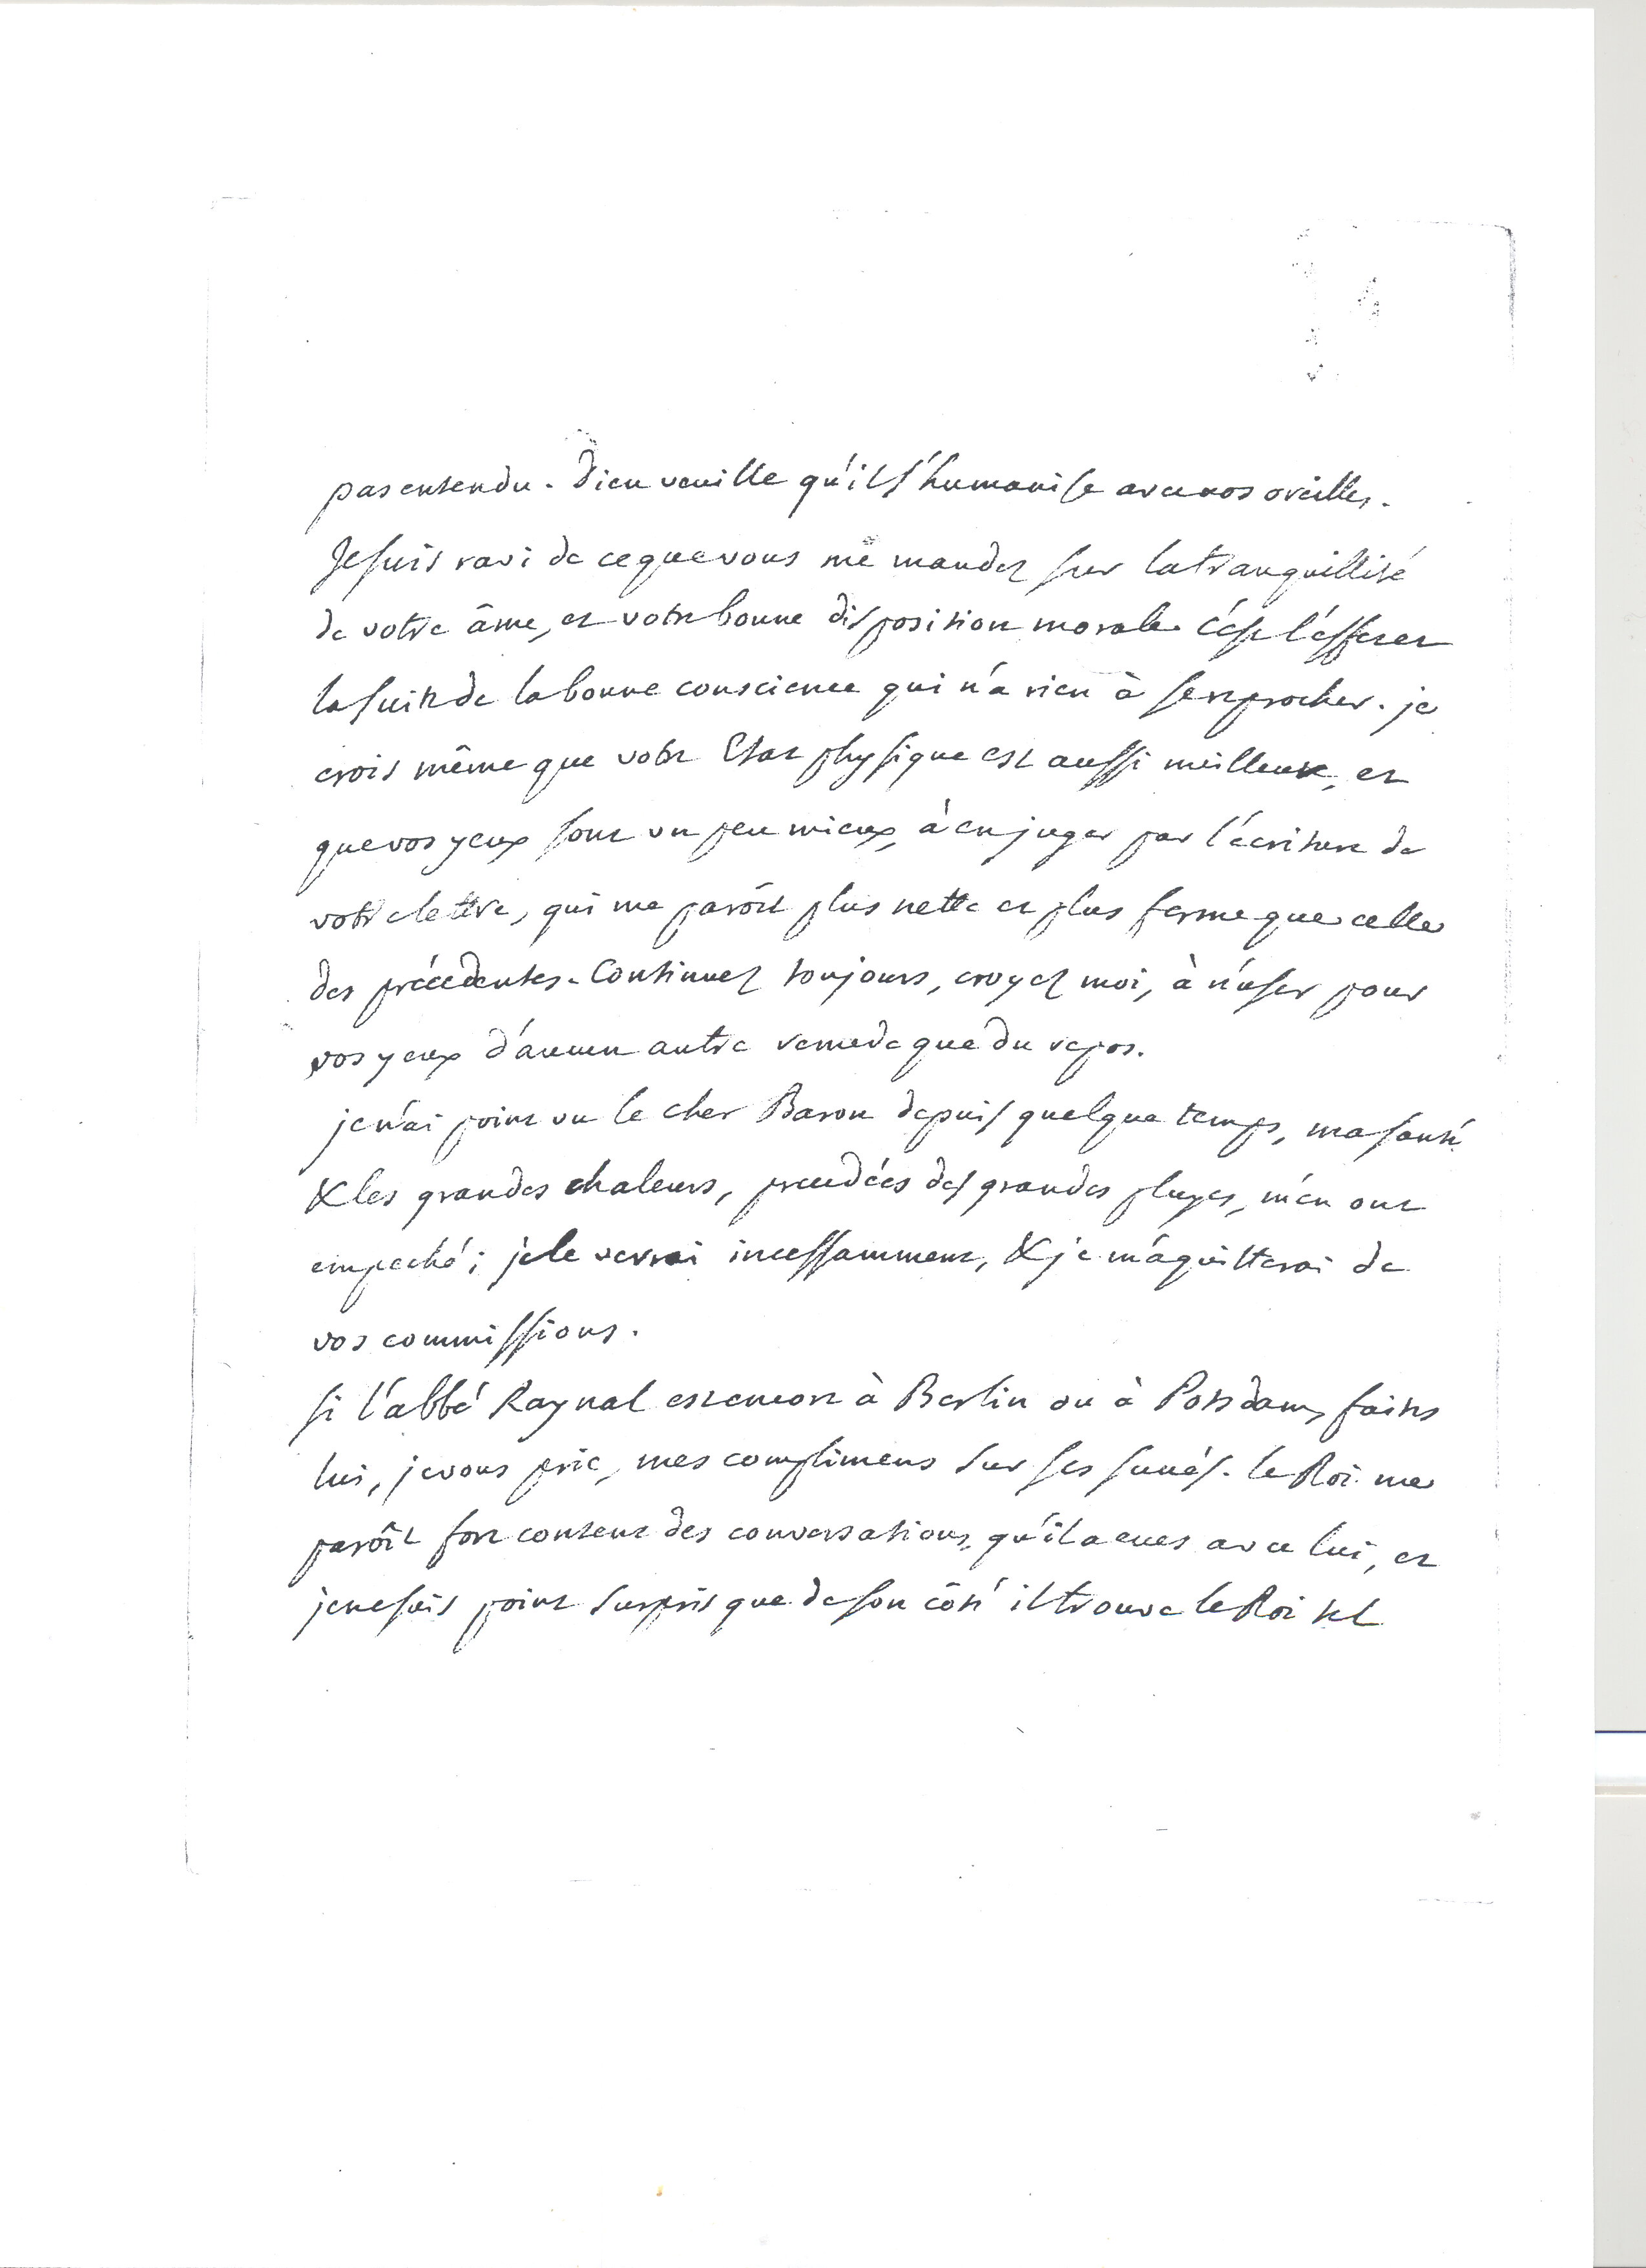 pas entendu. Dieu veuille qu'il s'humanise avec nos oreilles.
Je suis ravi de ce que vous me mandez sur la tranquillité
de votre âme, et votre bonne disposition morale. c'est l'effet et
la suite de la bonne conscience qui n'a rien à se reprocher. je
crois même que votre Etat physique est aussi meilleur, et
que vos yeux sont un peu mieux, à en juger par l'écriture de
votre lettre, qui me paroît plus nette et plus ferme que celle
des précédentes. Continuez toujours, croyez moi, à n'user pour
vos yeux d'aucun autre remede que du repos.
je n'ai point vu le cher Baron depuis quelque temps, ma santé
& les grandes chaleurs, precédées des grandes pluyes, m'en ont
empeché; je le verrai incessamment, & je m'aquitterai de
vos commissions.
si l'abbé Raynal est encore à Berlin ou à Potsdam, faites
lui, je vous prie, mes complimens sur ses succés. le Roi me
paroît fort content des conversations qu'il a eues avec lui, et
je ne suis point surpris que de son côté il trouve le Roi tel